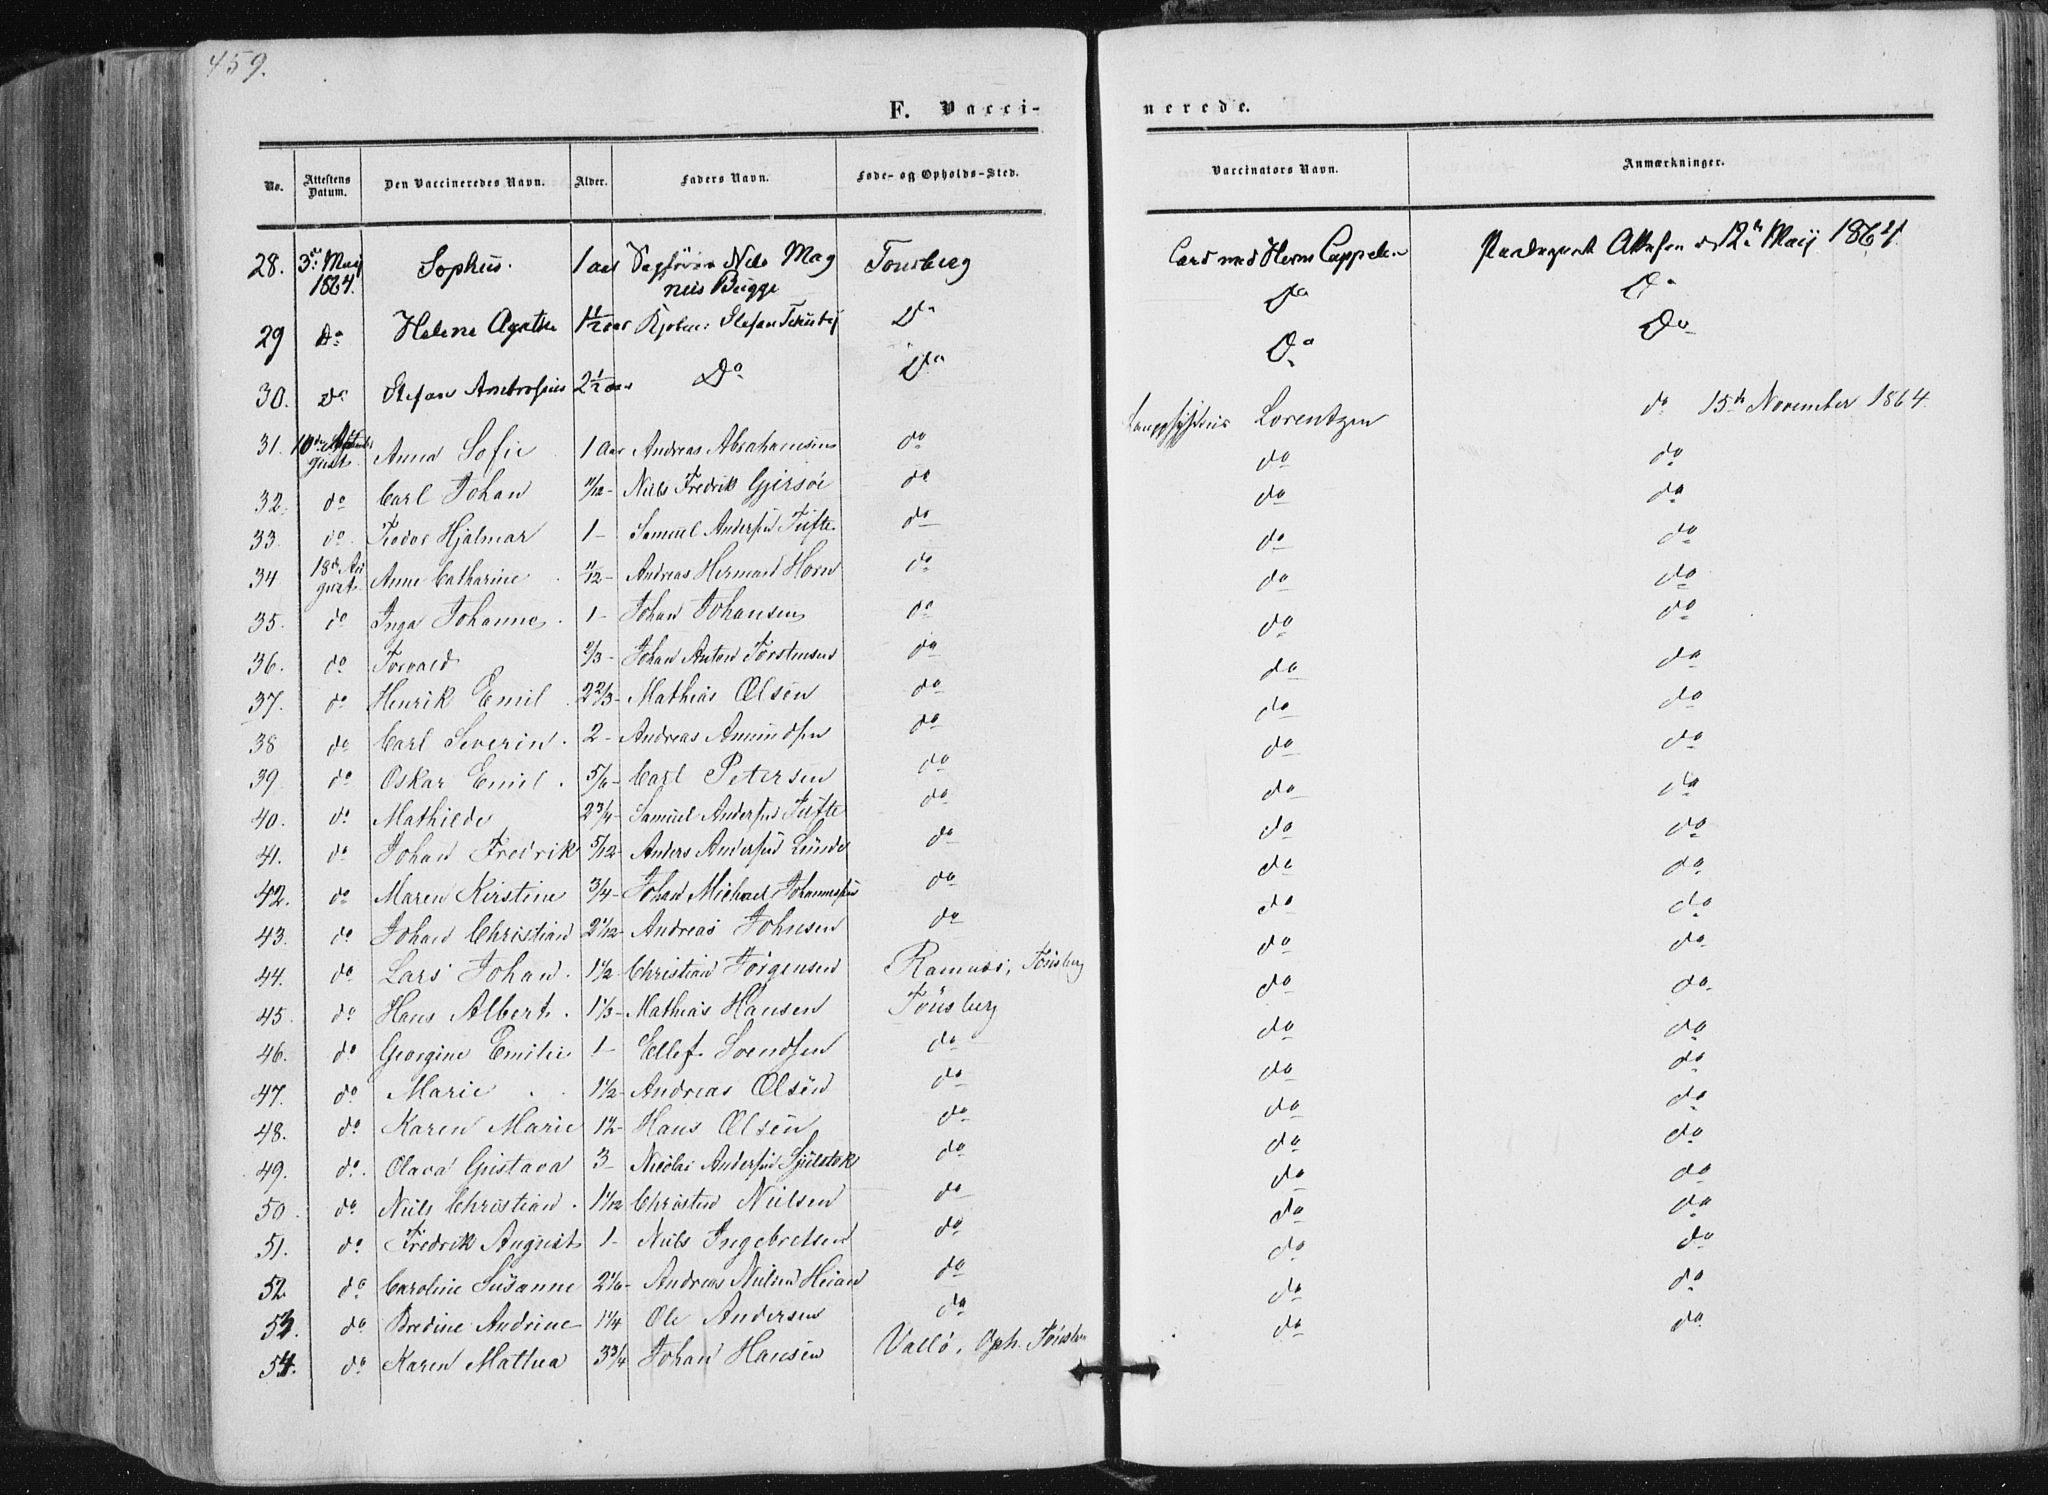 459.
F. Vacci-
nerede.
No. Attestens Datum. Den Vaccineredes Navn. Alder. Faders Navn. Føde- og Opholds-Sted. Vaccinators Navn. Anmærkninger.
28. 3die Maij 1864. Sophus. 1 aar Sagfører Nils Magnus Bugge Tonsberg Cand med Herm Cappelen 12te Maij 1864.
29 Do Helene Agathe 1 1/2 aar Kjøbm: Stefan Do Do Do
30. Do Stefan Ambrosius 2 1/2 aar Do Do Do Do
31. 10de August Anna Sofie 1 aar Andreas Abrahamsen do Lorentzen do 15de November 1864.
32. do Carl Johan 11/12 - Niels Fredrik Gjersøe do do do
33. do Teodor Hjalmar 1 - Samuel Andersen Tufte do do do
34 18de August Anne Catharine 11/12 - Andreas Herman Horn do do do
35. do Inga Johanne 1 - Johan Johansen do do do
36. do Torvald 2/3 - Johan Anton Torstensen do do do
37. do Henrik Emil 2 2/3 - Mathias Olsen do do do
38 do Carl Severin. 2 - Andreas Amundsen do do do
39. do Oskar Emil. 5/6 - Carl Petersen do do do
40. do Mathilde 2 3/4 - Samuel Andersen Tufte do do do
41. do Johan Fredrik 5/12 - Anders Andersen Lunde do do do
42. do Maren Kirstine 3/4 - Johan Michael Johannesen do do do
43. do Johan Christian 2 1/12 - Andreas Johnsen do do do
44. do Lars Johan. 1 1/2 - Christian Jörgensen Ramnæs, Tönsberg do do
45. do Hans Albert. 1 1/3 - Mathias Hansen Tönsberg do do
46. do Georgine Emilie 1 - Ellef Svendsen do do do
47. do Marie 1 1/2 - Andreas Olsen do do do
48. do Karen Marie 1 1/2 - Hans Olsen do do do
49. do. Olava Gustava 3 - Nicolai Andersen do do do
50. do Niels Christian. 1 1/12 Christen Nielsen do do do
51. do Fredrik August 1 - Niels Ingebretsen do do do
52. do Caroline Susanne 2 1/6 - Andreas Nielsen Heian do do do
53. do Bredine Andrine 1 1/4 Ole Andersen do do do
54. do Karen Mathea 3 3/4 Johan Hansen Vallö, Oph. Tönsber do do